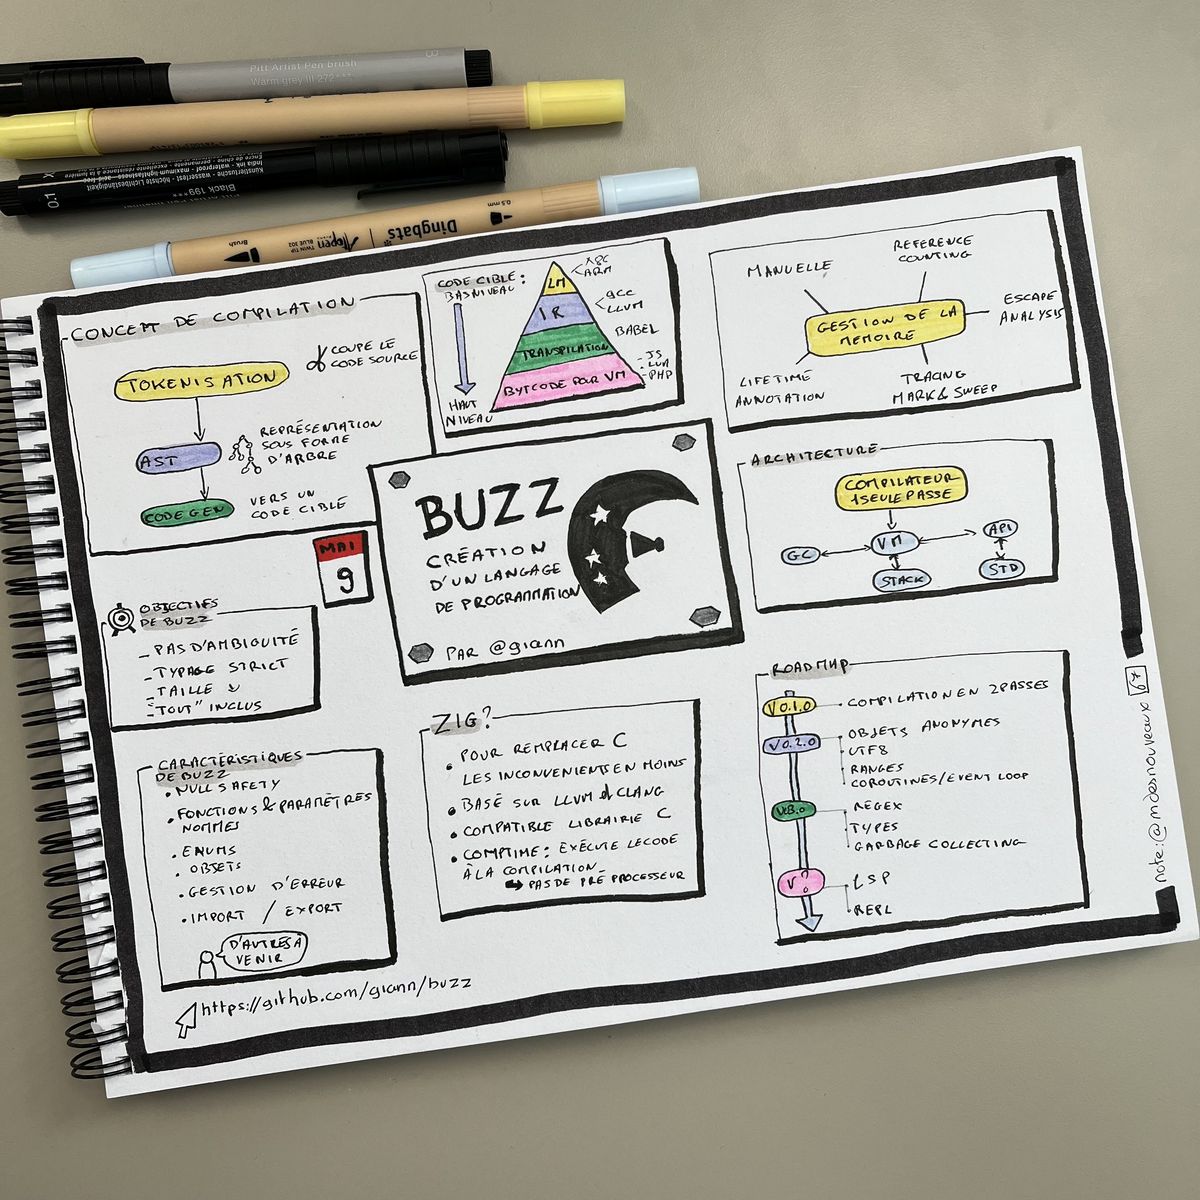 Pitt Artist Pen brush
Warm grey III 272***
India ink - waterproof
Künstlertusche - wasserfest
Black 199***
0.1
Dingbats
Atopen
TWIN TIP
BLUE 102
Brush
0.5 mm
CONCEPT DE COMPILATION
TOKENISATION
COUPE LE
CODE SOURCE
AST
REPRÉSENTATION
SOUS FORME
D'ARBRE
CODE GEN
VERS UN
CODE CIBLÉ
CODE CIBLE :
BAS NIVEAU
HAUT
NIVEAU
LM
IR
TRANSPILATION
BYTCODE POUR VM
ARM
gcc
LLVM
BABEL
- JS
- LUA
- PHP
GESTION DE LA
MEMOIRE
MANUELLE
REFERENCE
COUNTING
ESCAPE
ANALYSIS
TRACING
MARK & SWEEP
LIFETIME
ANNOTATION
MAI
9
BUZZ
CRÉATION
D'UN LANGAGE
DE PROGRAMMATION
PAR @giann
ARCHITECTURE
COMPILATEUR
1 SEULE PASSE
GC
VM
API
STACK
STD
OBJECTIFS
DE BUZZ
- PAS D'AMBIGUITÉ
- TYPAGE STRICT
- TAILLE
- "TOUT" INCLUS
CARACTÉRISTIQUES
DE BUZZ
• NULL SAFETY
• FONCTIONS & PARAMÈTRES
NOMMES
• ENUMS
• OBJETS
• GESTION D'ERREUR
• IMPORT / EXPORT
D'AUTRES À
VENIR
ZIG?
• POUR REMPLACER C
LES INCONVENIENTS EN MOINS
• BASÉ SUR LLVM & CLANG
• COMPATIBLE LIBRAIRIE C
• COMPTIME : EXÉCUTE LE CODE
À LA COMPILATION
↳ PAS DE PRÉ PROCESSEUR
ROADMAP
V0.1.0
• COMPILATION EN 2 PASSES
V0.2.0
• OBJETS ANONYMES
• UTF8
• RANGES
• COROUTINES/EVENT LOOP
• REGEX
• TYPES
• GARBAGE COLLECTING
V ?
• LSP
• REPL
https://github.com/giann/buzz
note: @mdesnouveaux